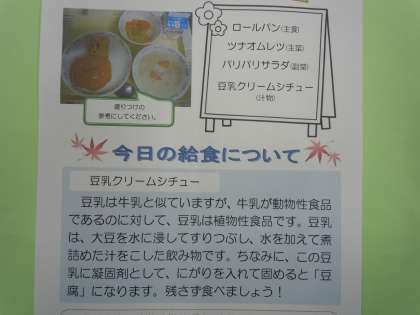 ロールパン(主食)
ツナオムレツ(主菜)
パリパリサラダ(副菜)
豆乳クリームシチュー
(汁物)
盛りつけの
参考にしてください。
今日の給食について
豆乳クリームシチュー
豆乳は牛乳と似ていますが、牛乳が動物性食品
であるのに対して、豆乳は植物性食品です。豆乳
は、大豆を水に浸してすりつぶし、水を加えて煮
詰めた汁をこした飲み物です。ちなみに、この豆
乳に凝固剤として、にがりを入れて固めると「豆
腐」になります。残さず食べましょう！